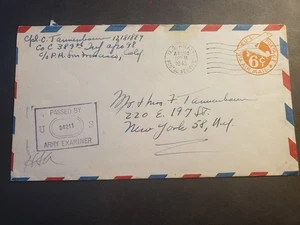 Cpl C. Tannenbaum
Co C 389th Inf APO 98
c/o P.M. San Francisco, Calif.
6¢
Mr & Mrs F Tannenbaum
220 E. 197 St.
New York 58, N.Y.
PASSED BY
ARMY EXAMINER